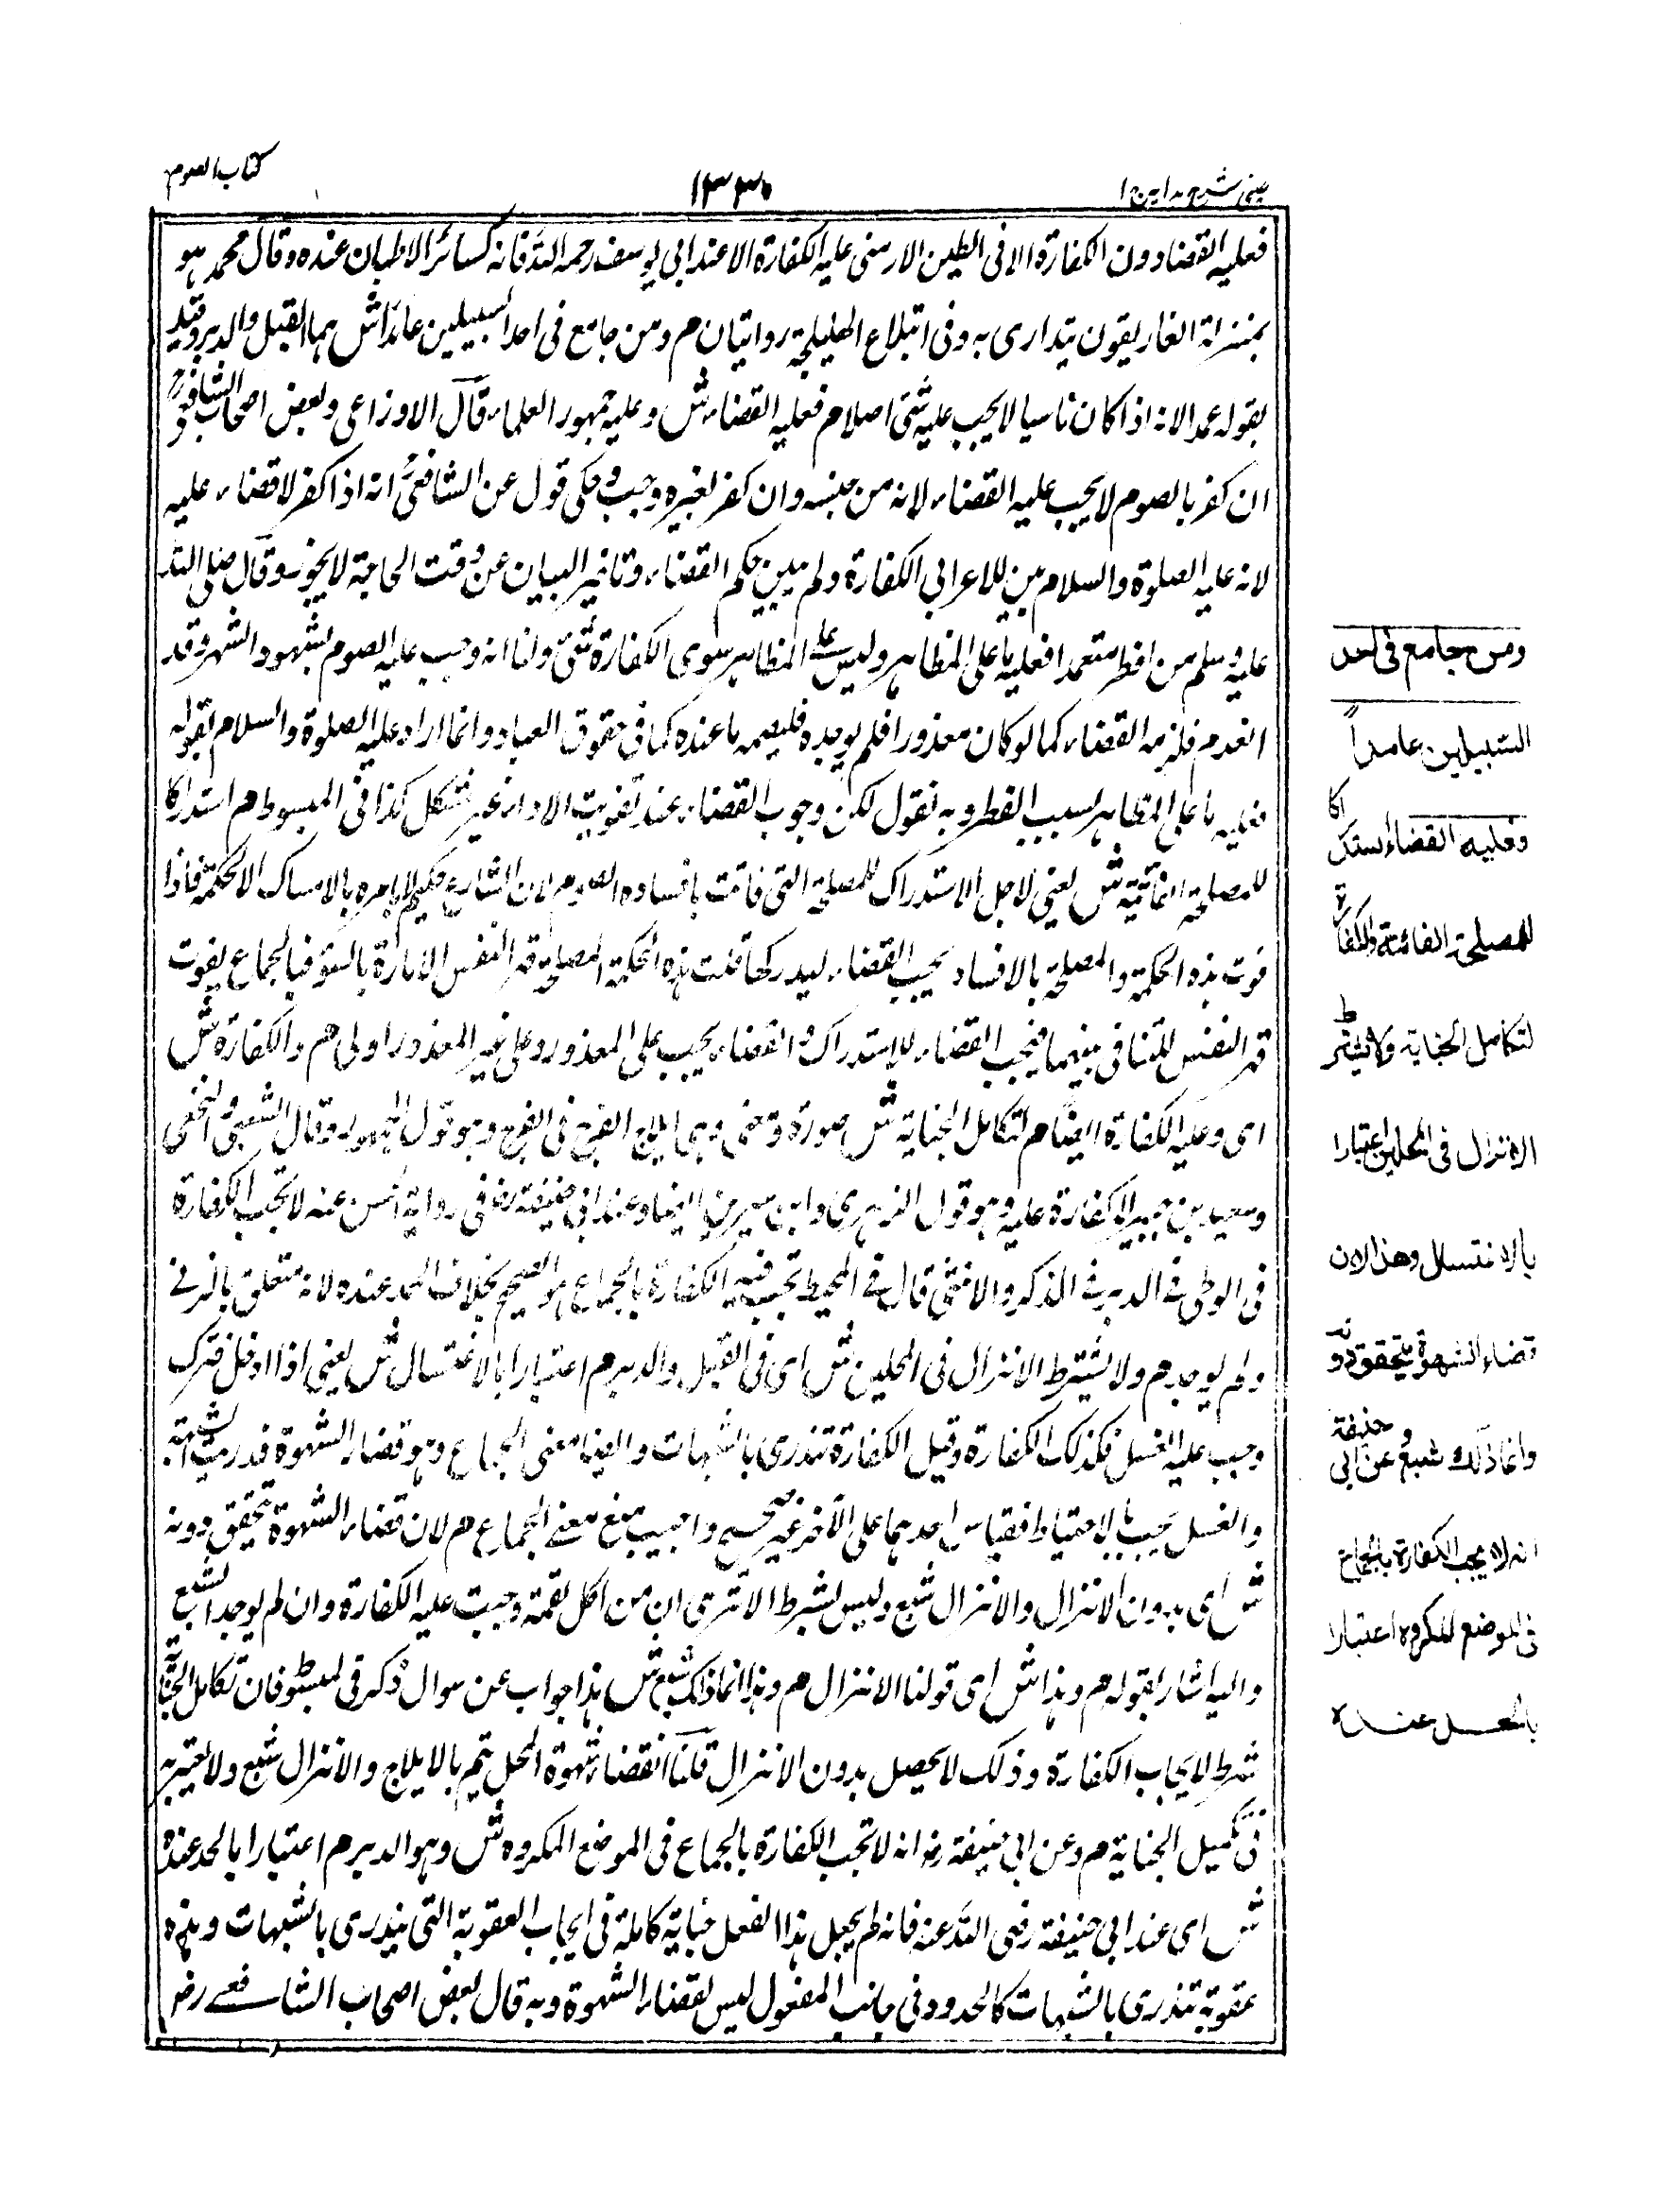 عینی شرح هدایہ ج ۱
۱۳۳۰
کتاب الصوم
فعلیہ القضاء دون الکفارة الا فی الطین الارمنی علیہ الکفارة الا عند ابی یوسف رحمہ اللہ فانہ کسائر الاطیان عندہ وقال محمد ہو
بمنزلة الغاریقون یتداوی بہ وفی ابتلاع الهلیلجة روایتان م ومن جامع فی احد السبیلین عامدا ش ہما القبل والدبر وقید
بقولہ عمدا لانہ اذا کان ناسیا لایجب علیہ شئ اصلا م فعلیہ القضاء ش وعلیہ جمہور العلماء قال الاوزاعی وبعض اصحاب الشافعی
ان کفر بالصوم لایجب علیہ القضاء لانہ من جنسہ وان کفر بغیرہ وجب وحکی قول عن الشافعی انہ اذا کفر لاقضاء علیہ
لانہ علیہ الصلوة والسلام بین للاعرابی الکفارة ولم یبین حکم القضاء وتاخیر البیان عن وقت الحاجة لایجوز وقال صلی اللہ
علیہ وسلم من افطر متعمدا فعلیہ ما علی المظاہر ولیس علی المظاہر سوی الکفارة شئ ولنا انہ وجب علیہ الصوم بشہود الشہر وقد
انعدم فلزمہ القضاء کما لو کان معذورا فلم یوجدہ فلیصمہ ما عندہ کما فی حقوق العباد وانما اراد علیہ الصلوة والسلام بقولہ
فعلیہ ما علی المظاہر بسبب الفطر وبہ نقول لکن وجوب القضاء عند تفویت الاداء غیر مشکل کذا فی المبسوط م استدراکا
للمصلحة الفائتة ش یعنی لاجل الاستدراک للمصلحة التی فاتت بافسادہ الصوم لان الشارع حکیم لایامرہ بالامساک الا لحکمة فاذا
فوت ہذہ الحکمة والمصلحة بالافساد یجب القضاء لیدرکها قلت ہذہ الحکمة المصلحة قہر النفس الامارة بالسوء فبالجماع یفوت
قہر النفس للتنافی بینہما فیجب القضاء للاستدراک والقضاء یجب علی المعذور وعلی غیر المعذور اولی م والکفارة ش
ای وعلیہ الکفارة ایضا م لتکامل الجنایة ش صورة ومعنی وہی ایلاج الفرج فی الفرج وہو قول الجمہور وقال الشعبی والنخعی
وسعید بن جبیر لا کفارة علیہ وہو قول الزہری وابن سیرین ایضا وعند ابی حنیفة رض فی روایة الحسن عنہ لاتجب الکفارة
فی الوطی فی الدبر فی الذکر والانثی قال فی المحیط تجب فیہ الکفارة بالجماع ہو الصحیح بخلاف الحد عندہ لانہ متعلق بالزنے
ولم یوجد م ولا یشترط الانزال فی المحلین ش ای فی القبل والدبر م اعتبارا بالاغتسال ش یعنی اذا ادخل فترک
وجب علیہ الغسل فکذلک الکفارة وقیل الکفارة تندری بالشبہات وایضا معنی الجماع وہو قضاء الشہوة قد ریث الشبہة
والغسل یجب بالاحتیاط فقیاس احدہما علی الآخر غیر صحیح واجیب بمنع معنے الجماع م لان قضاء الشہوة یتحقق دونہ
ش ای بدون الانزال والانزال شبع ولیس بشرط الا تری ان من اکل لقمة وجبت علیہ الکفارة وان لم یوجد الشبع
والیہ اشار بقولہ م وہذا ش ای قولنا الانزال م وہذا انما ذلک شبع ش ہذا جواب عن سوال ذکر فی المبسوط فان تکامل الجنایة
شرط لایجاب الکفارة وذلک لایحصل بدون الانزال قلنا انقضاء شہوة المحل یتم بالایلاج والانزال شبع ولا معتبر بہ
فی تکمیل الجنایة م وعن ابی حنیفة رض انہ لاتجب الکفارة بالجماع فی الموضع المکروہ ش وہو الدبر م اعتبارا بالحد عندہ
ش ای عند ابی حنیفة رضی اللہ عنہ فانہ لم یجعل ہذا الفعل جنایة کاملة فی ایجاب العقوبة التی یندری بالشبہات وہذہ
عقوبة تندری بالشبہات کالحدود وفی جانب المفعول لیس لقضاء الشہوة وبہ قال بعض اصحاب الشافعے رض
ومن جامع فی احد
السبیلین عامداً
فعلیہ القضاء استدراکا
للمصلحة الفائتة والکفارة
لتکامل الجنایة ولا یشترط
الانزال فی المحلین اعتبارا
بالاغتسال وهذا لان
قضاء الشہوة یتحقق دونہ
وانما ذلک شبع وعن ابی حنیفة
انہ لا یجب الکفارة بالجماع
فی الموضع المکروہ اعتبارا
بالحد عندہ